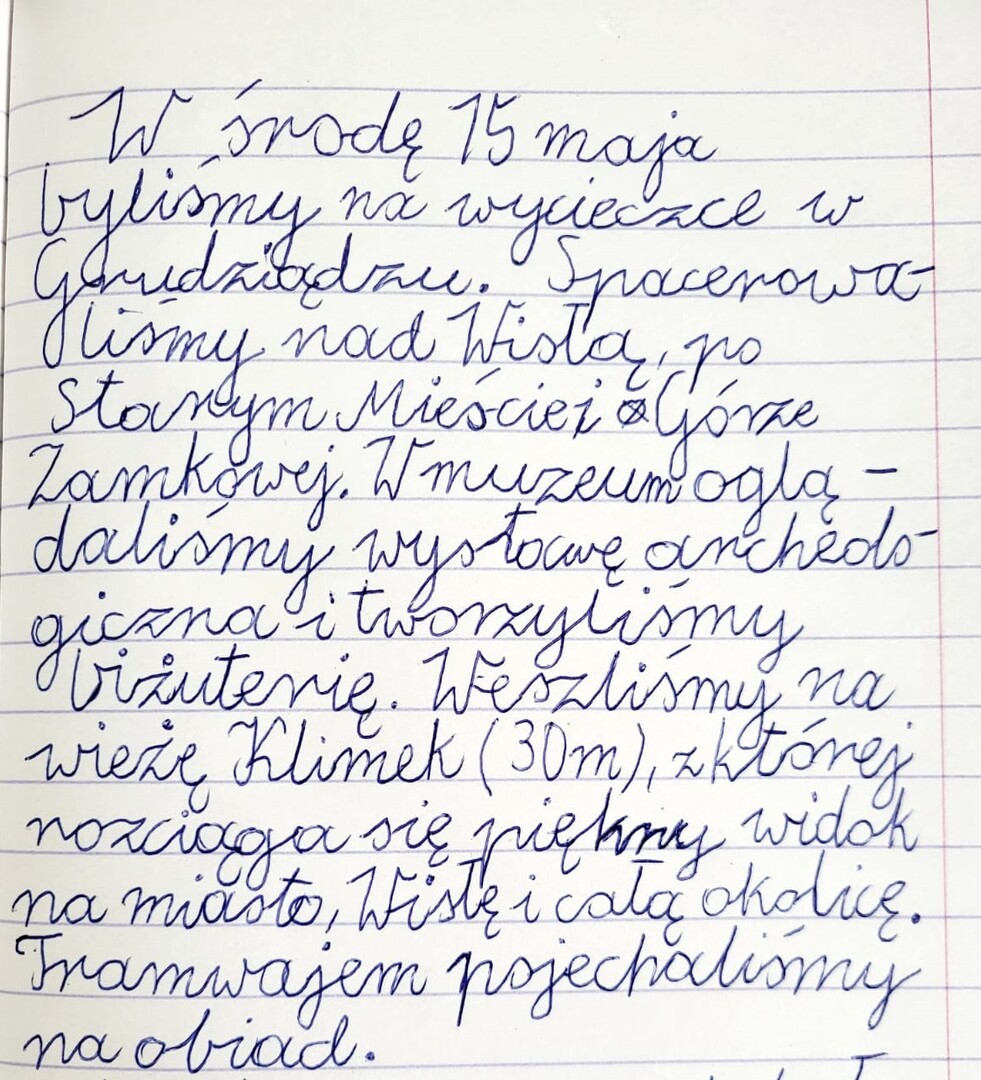 W środę 15 maja
byliśmy na wycieczce w
Grudziądzu. Spacerowa-
liśmy nad Wisłą, po
Starym Mieście i Górze
Zamkowej. W muzeum oglą-
daliśmy wystawę archeolo-
giczna i tworzyliśmy
biżuterię. Weszliśmy na
wieżę Klimek (30m), z której
rozciąga się piękny widok
na miasto, Wisłę i całą okolicę.
Tramwajem pojechaliśmy
na obiad.